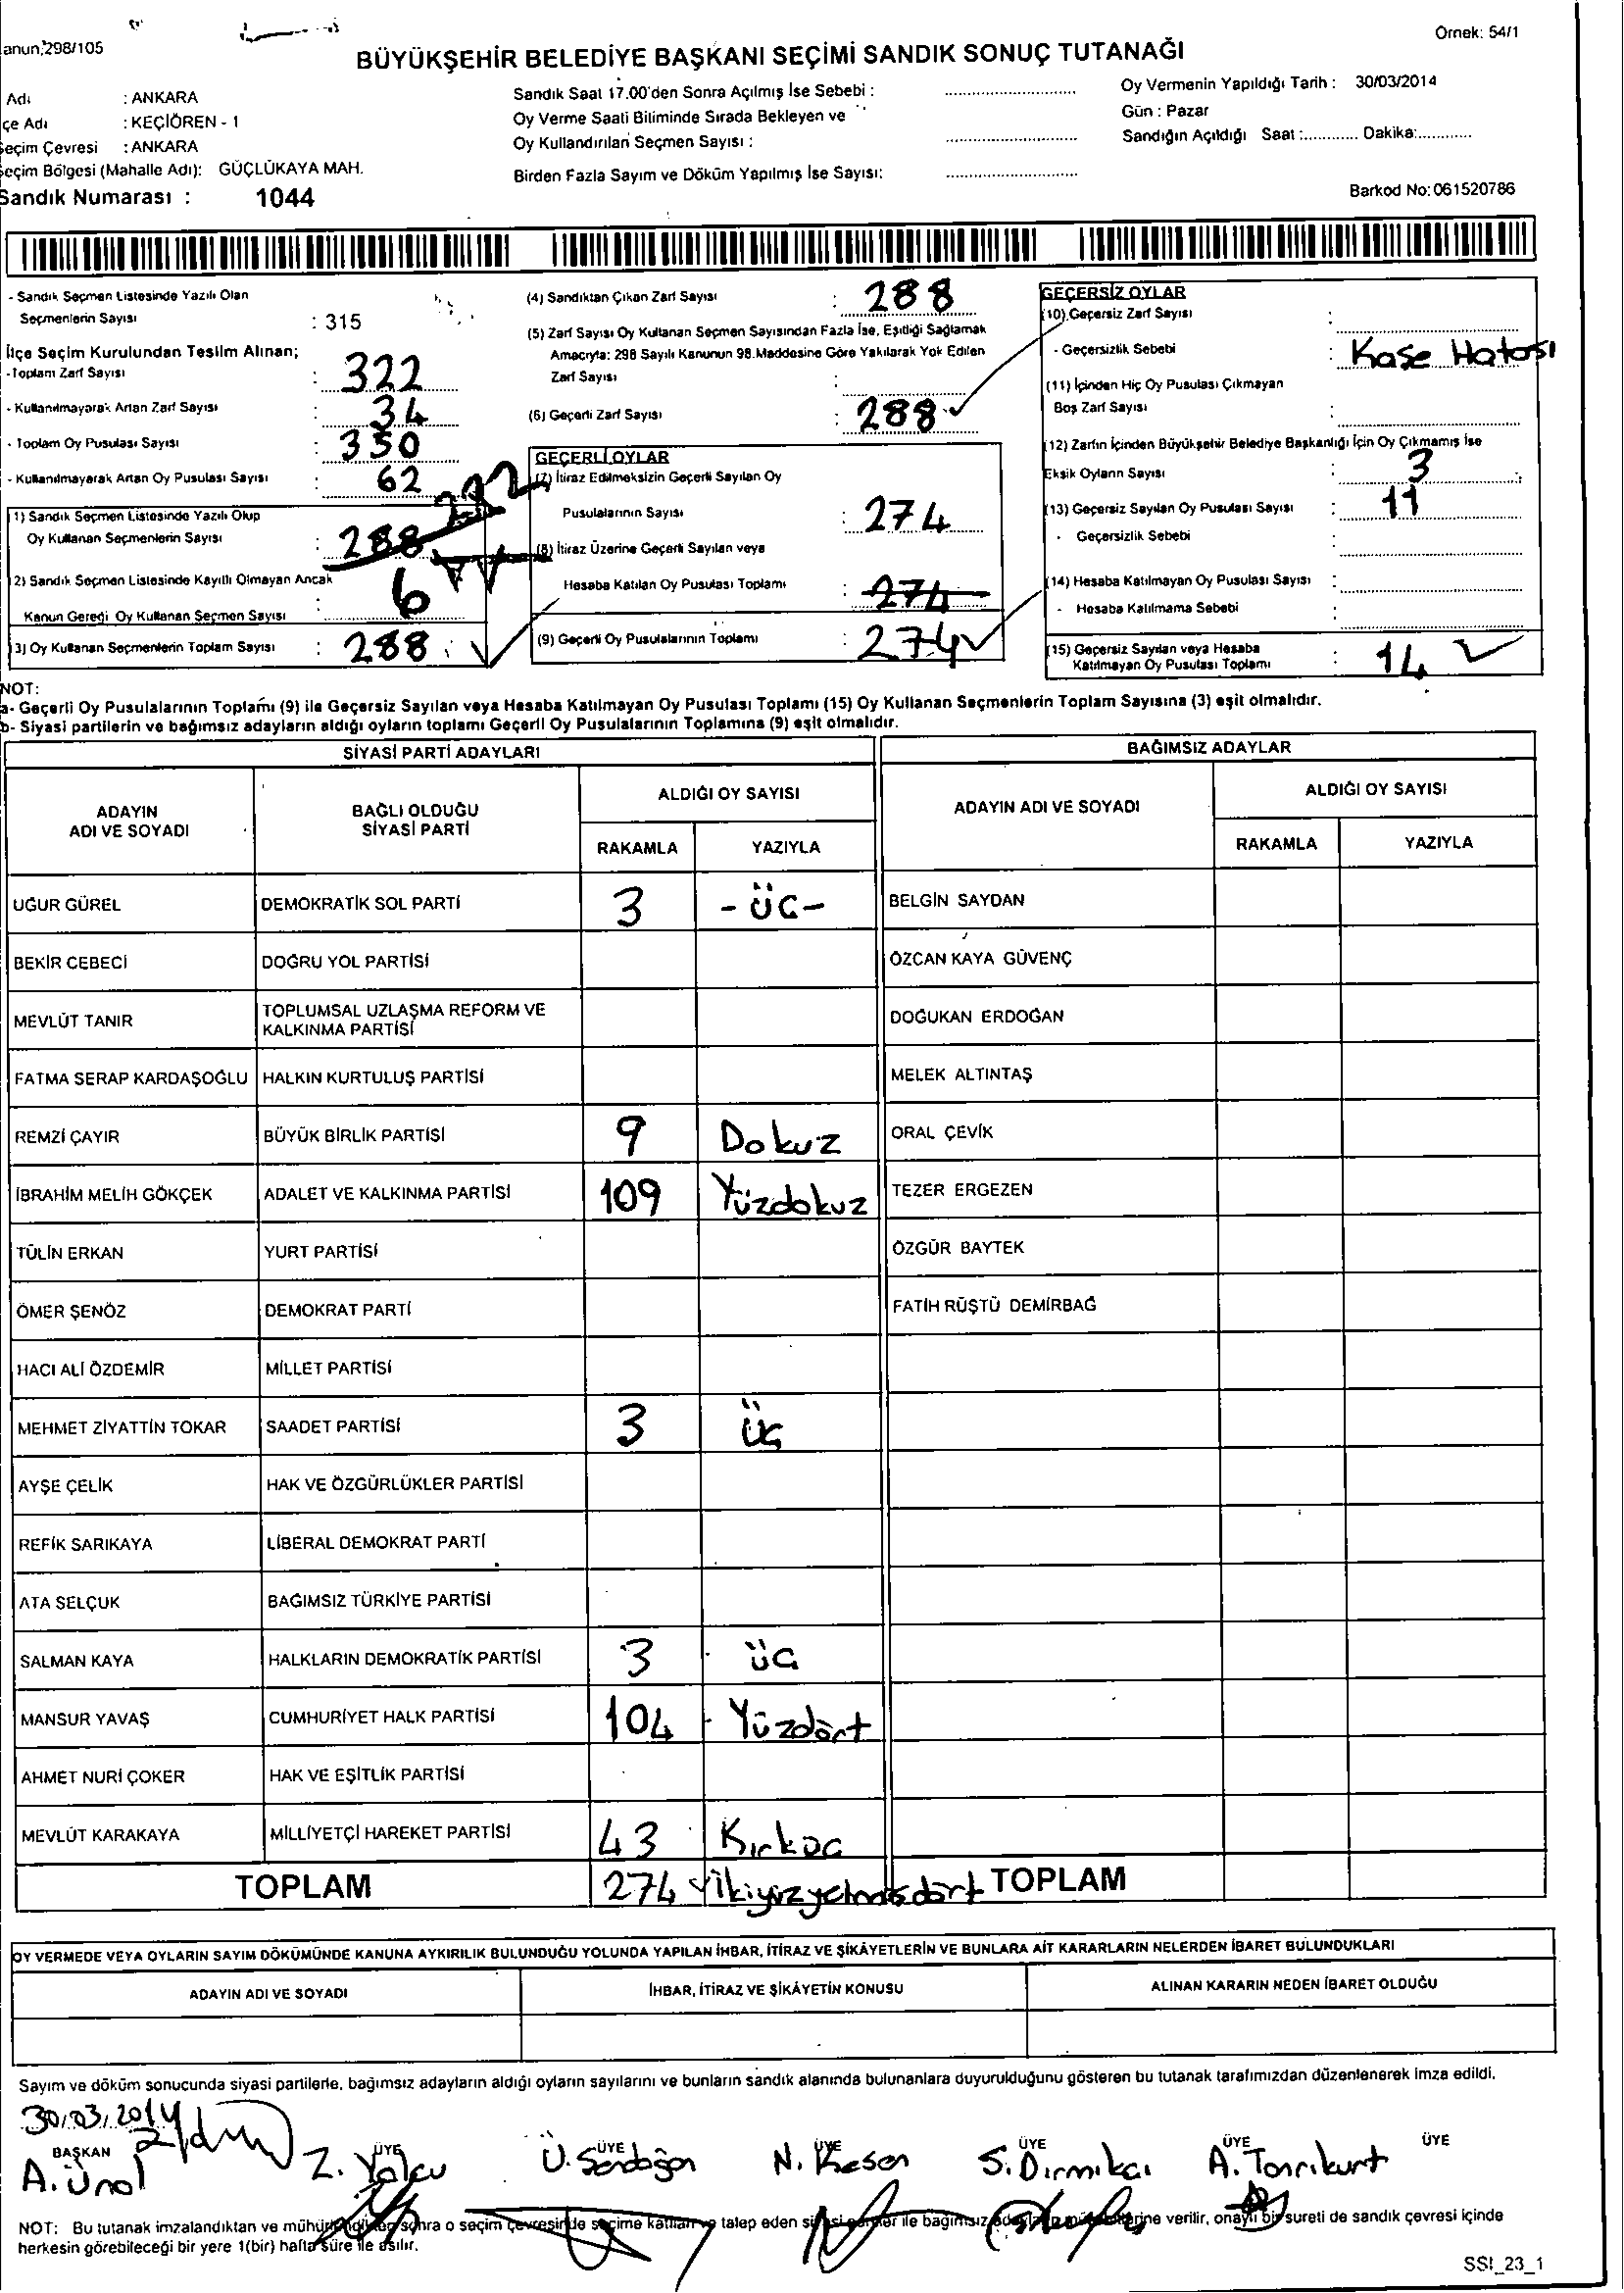 anun;298/105
Örnek: 54/1
BÜYÜKŞEHİR BELEDİYE BAŞKANI SEÇİMİ SANDIK SONUÇ TUTANAĞI
Adı : ANKARA
çe Adı : KEÇİÖREN - 1
Seçim Çevresi : ANKARA
Seçim Bölgesi (Mahalle Adı): GÜÇLÜKAYA MAH.
Sandık Numarası : 1044
Sandık Saat 17.00'den Sonra Açılmış İse Sebebi :
Oy Verme Saati Bitiminde Sırada Bekleyen ve
Oy Kullandırılan Seçmen Sayısı :
Birden Fazla Sayım ve Döküm Yapılmış İse Sayısı:
Oy Vermenin Yapıldığı Tarih : 30/03/2014
Gün : Pazar
Sandığın Açıldığı Saat :............ Dakika:............
Barkod No: 061520786
- Sandık Seçmen Listesinde Yazılı Olan
Seçmenlerin Sayısı : 315
İlçe Seçim Kurulundan Teslim Alınan;
- Toplam Zarf Sayısı : 322
- Kullanılmayarak Artan Zarf Sayısı : 34
- Toplam Oy Pusulası Sayısı : 350
- Kullanılmayarak Artan Oy Pusulası Sayısı : 62
1) Sandık Seçmen Listesinde Yazılı Olup
Oy Kullanan Seçmenlerin Sayısı : 288 282
2) Sandık Seçmen Listesinde Kayıtlı Olmayan Ancak
Kanun Geredi Oy Kullanan Seçmen Sayısı : 6
3) Oy Kullanan Seçmenlerin Toplam Sayısı : 288
(4) Sandıktan Çıkan Zarf Sayısı : 288
(5) Zarf Sayısı Oy Kullanan Seçmen Sayısından Fazla İse, Eşitliği Sağlamak
Amacıyla: 298 Sayılı Kanunun 98.Maddesine Göre Yakılarak Yok Edilen
Zarf Sayısı :
(6) Geçerli Zarf Sayısı : 288
GEÇERLİ OYLAR
(7) İtiraz Edilmeksizin Geçerli Sayılan Oy
Pusulalarının Sayısı : 274
(8) İtiraz Üzerine Geçerli Sayılan veya
Hesaba Katılan Oy Pusulası Toplamı : 274
(9) Geçerli Oy Pusulalarının Toplamı : 274
GEÇERSİZ OYLAR
(10) Geçersiz Zarf Sayısı :
- Geçersizlik Sebebi : Kaşe Hatası
(11) İçinden Hiç Oy Pusulası Çıkmayan
Boş Zarf Sayısı :
(12) Zarfın İçinden Büyükşehir Belediye Başkanlığı İçin Oy Çıkmamış İse
Eksik Oyların Sayısı : 3
(13) Geçersiz Sayılan Oy Pusulası Sayısı : 11
- Geçersizlik Sebebi :
(14) Hesaba Katılmayan Oy Pusulası Sayısı :
- Hesaba Katılmama Sebebi :
(15) Geçersiz Sayılan veya Hesaba
Katılmayan Oy Pusulası Toplamı : 14
NOT:
a- Geçerli Oy Pusulalarının Toplamı (9) ile Geçersiz Sayılan veya Hesaba Katılmayan Oy Pusulası Toplamı (15) Oy Kullanan Seçmenlerin Toplam Sayısına (3) eşit olmalıdır.
b- Siyasi partilerin ve bağımsız adayların aldığı oyların toplamı Geçerli Oy Pusulalarının Toplamına (9) eşit olmalıdır.
SİYASİ PARTİ ADAYLARI
BAĞIMSIZ ADAYLAR
ADAYIN ADI VE SOYADI
BAĞLI OLDUĞU SİYASİ PARTİ
ALDIĞI OY SAYISI
RAKAMLA YAZIYLA
ADAYIN ADI VE SOYADI
ALDIĞI OY SAYISI
RAKAMLA YAZIYLA
UĞUR GÜREL DEMOKRATİK SOL PARTİ 3 - ÜÇ - BELGİN SAYDAN
BEKİR CEBECİ DOĞRU YOL PARTİSİ ÖZCAN KAYA GÜVENÇ
MEVLÜT TANIR TOPLUMSAL UZLAŞMA REFORM VE KALKINMA PARTİSİ DOĞUKAN ERDOĞAN
FATMA SERAP KARDAŞOĞLU HALKIN KURTULUŞ PARTİSİ MELEK ALTINTAŞ
REMZİ ÇAYIR BÜYÜK BİRLİK PARTİSİ 9 Dokuz ORAL ÇEVİK
İBRAHİM MELİH GÖKÇEK ADALET VE KALKINMA PARTİSİ 109 Yüzdokuz TEZER ERGEZEN
TÜLİN ERKAN YURT PARTİSİ ÖZGÜR BAYTEK
ÖMER ŞENÖZ DEMOKRAT PARTİ FATİH RÜŞTÜ DEMİRBAĞ
HACI ALİ ÖZDEMİR MİLLET PARTİSİ
MEHMET ZİYATTİN TOKAR SAADET PARTİSİ 3 üç
AYŞE ÇELİK HAK VE ÖZGÜRLÜKLER PARTİSİ
REFİK SARIKAYA LİBERAL DEMOKRAT PARTİ
ATA SELÇUK BAĞIMSIZ TÜRKİYE PARTİSİ
SALMAN KAYA HALKLARIN DEMOKRATİK PARTİSİ 3 üç
MANSUR YAVAŞ CUMHURİYET HALK PARTİSİ 104 Yüzdört
AHMET NURİ ÇOKER HAK VE EŞİTLİK PARTİSİ
MEVLÜT KARAKAYA MİLLİYETÇİ HAREKET PARTİSİ 43 Kırküç
TOPLAM 274 ikiyüzyetmişdört TOPLAM
OY VERMEDE VEYA OYLARIN SAYIM DÖKÜMÜNDE KANUNA AYKIRILIK BULUNDUĞU YOLUNDA YAPILAN İHBAR, İTİRAZ VE ŞİKÂYETLERİN VE BUNLARA AİT KARARLARIN NELERDEN İBARET BULUNDUKLARI
ADAYIN ADI VE SOYADI İHBAR, İTİRAZ VE ŞİKÂYETİN KONUSU ALINAN KARARIN NEDEN İBARET OLDUĞU
Sayım ve döküm sonucunda siyasi partilerle, bağımsız adayların aldığı oyların sayılarını ve bunların sandık alanında bulunanlara duyurulduğunu gösteren bu tutanak tarafımızdan düzenlenerek imza edildi.
30.03.2014
BAŞKAN ÜYE ÜYE ÜYE ÜYE ÜYE ÜYE
A. Ünal Z. Yalçu Ü. Serdoğan N. Kesen S. Dırmıkcı A. Tanrıkurt
NOT: Bu tutanak imzalandıktan ve mühürlendikten sonra o seçim çevresinde seçime katılan ve talep eden siyasi partiler ile bağımsız adayların müşahitlerine verilir, onaylı bir sureti de sandık çevresi içinde
herkesin görebileceği bir yere 1(bir) hafta süre ile asılır.
SSI_23_1